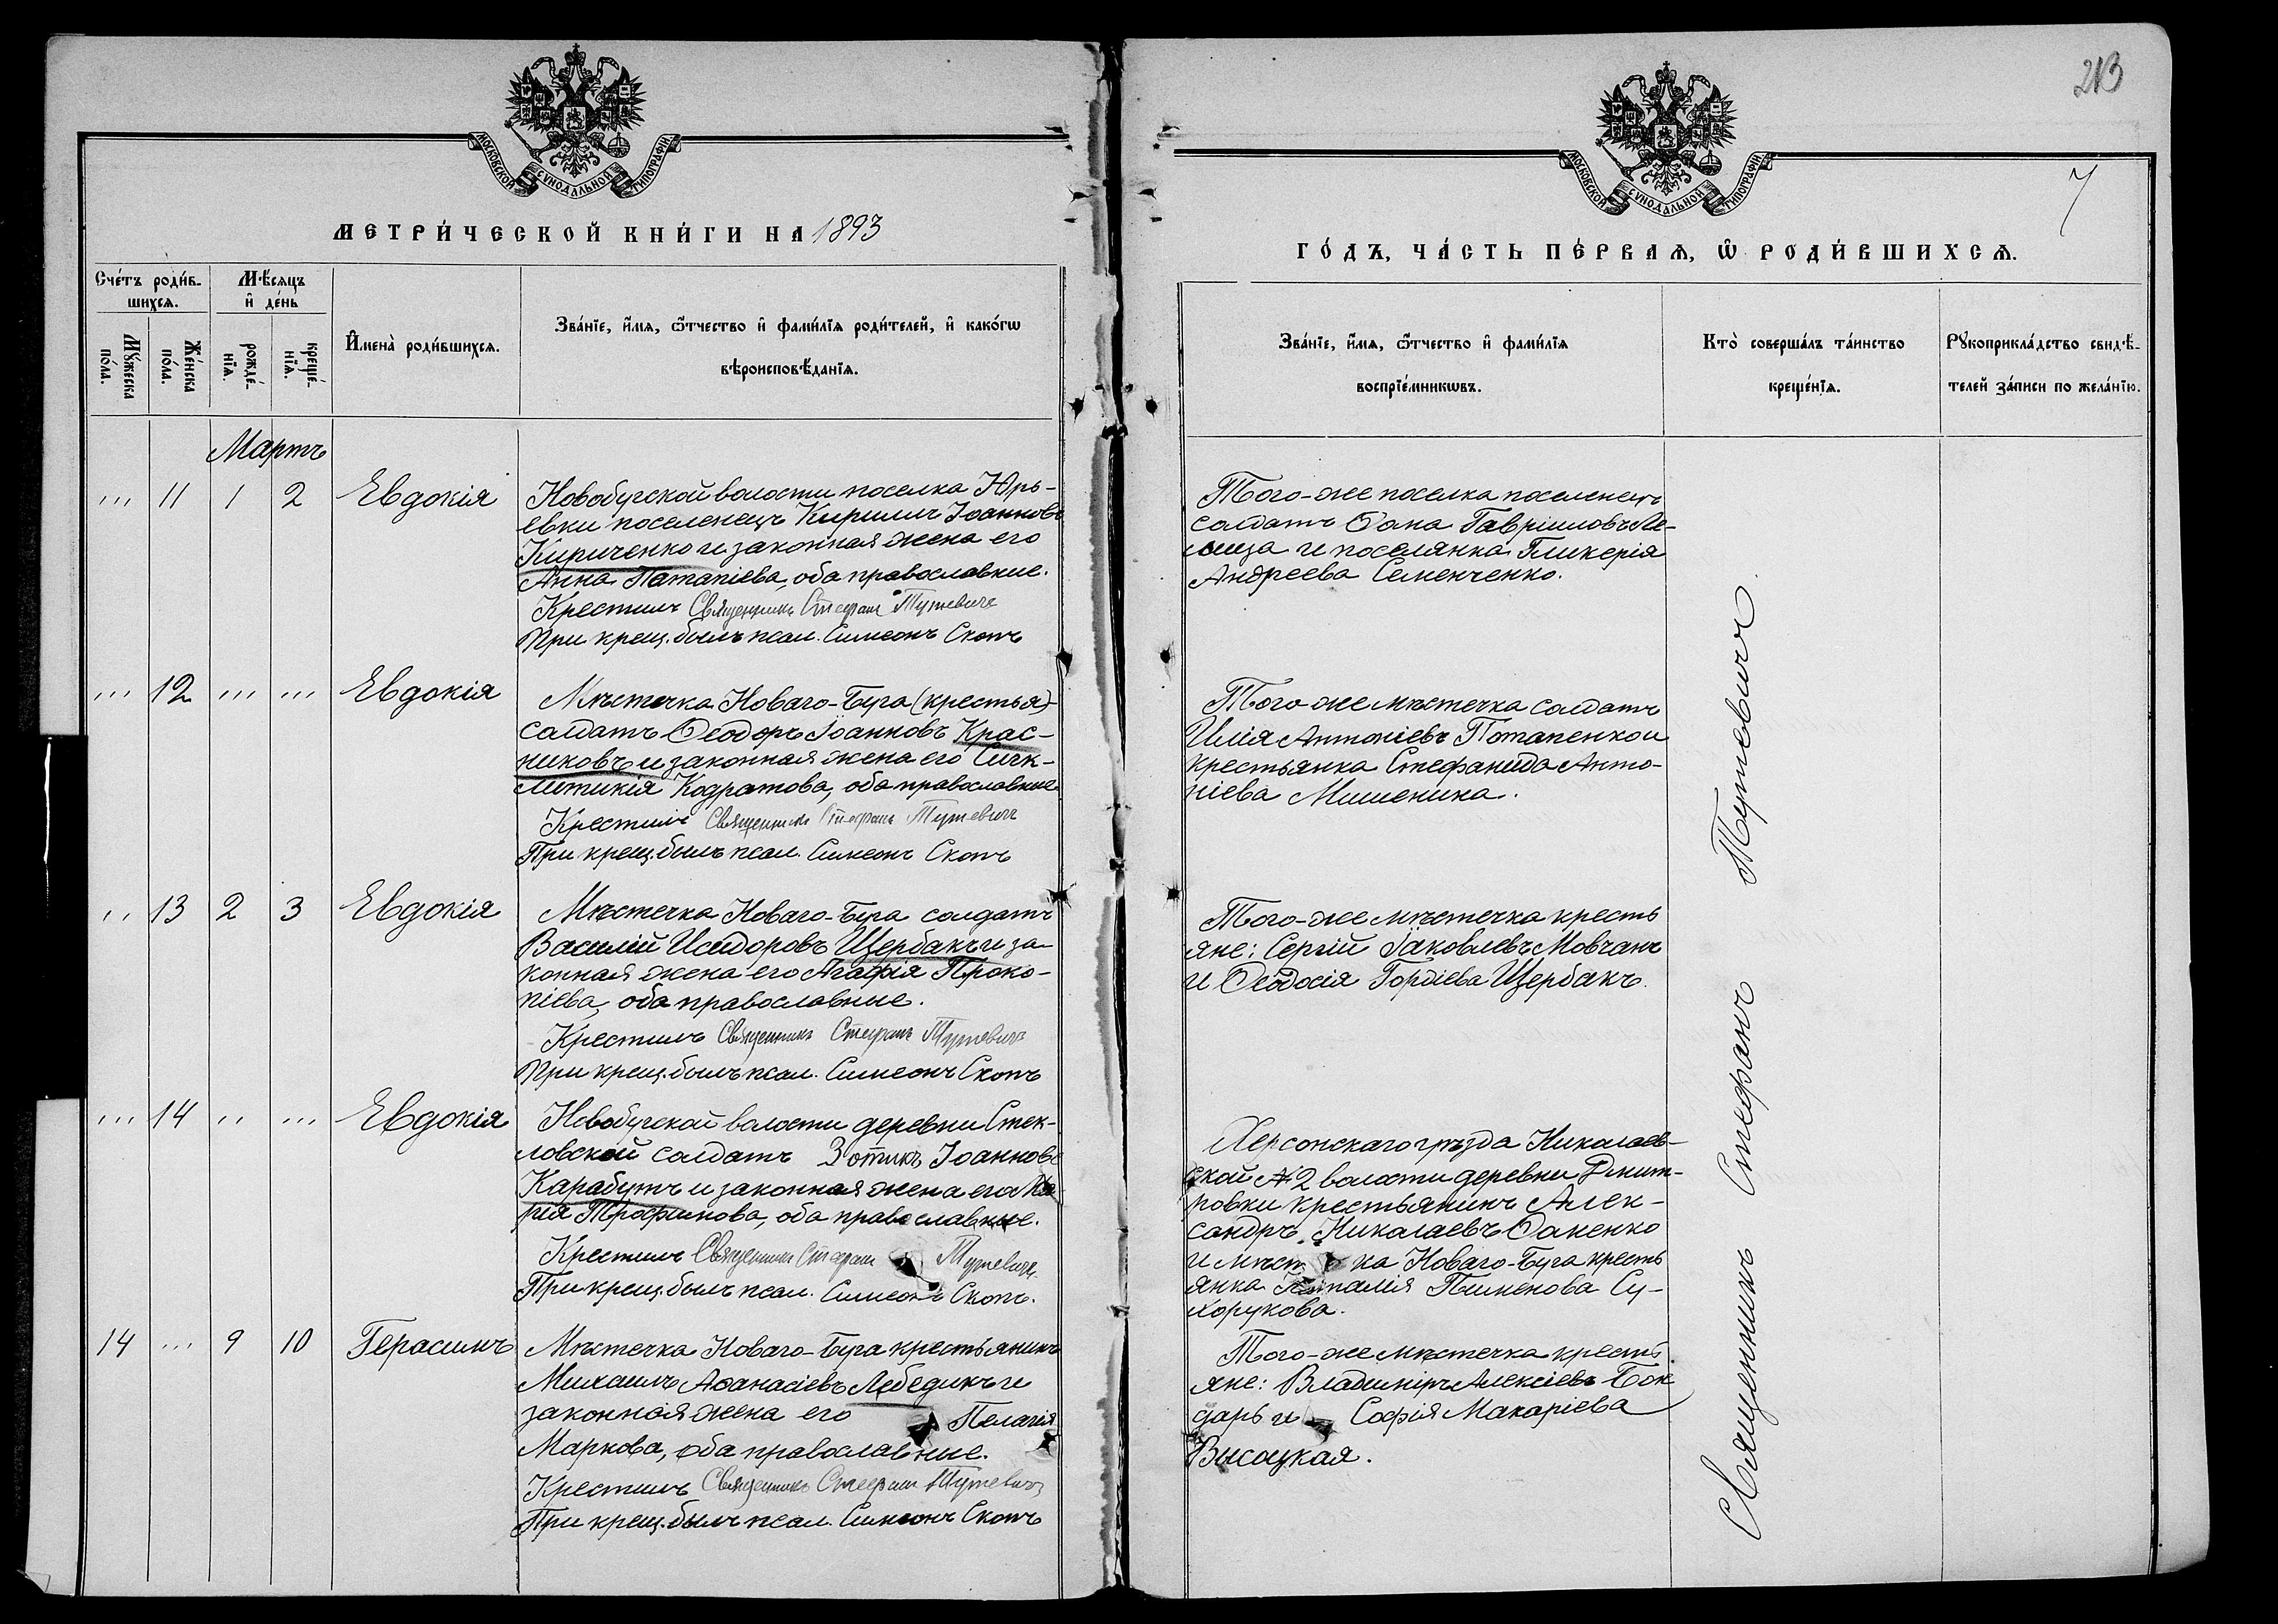 213
7
МОСКОВСКОЙ СѴНОДАЛЬНОЙ ТИПОГРАФІИ
МОСКОВСКОЙ СѴНОДАЛЬНОЙ ТИПОГРАФІИ
МЕТРИ́ЧЕСКОЙ КНИ́ГИ НА 1893
ГО́ДЪ, ЧА́СТЬ ПЕ́РВАѦ, Ѿ РОДИ́ВШИХСѦ.
Счéтъ роди́в-
шихсѧ.
Мѣ́сѧцъ
и҆ де́нь
Мꙋ́жеска по́ла.
Же́нска по́ла.
рожде́-
нїѧ.
креще́-
нїѧ.
И҆мена̀ роди́вшихсѧ.
Зва́нїе, и҆́мѧ, ѻ҆́тчество и҆ фами́лїѧ роди́телей, и҆ како́гѡ
вѣроисповѣ́данїѧ.
Зва́нїе, и҆́мѧ, ѻ҆́тчество и҆ фами́лїѧ
воспрїе́мникѡвъ.
Кто̀ соверша́лъ та́инство
креще́нїѧ.
Рꙋкоприкла́дство свидѣ́-
телей за́писи по жела́нїю.
Мартъ
... 11 1 2 Евдокія
Новобугской волости поселка Юрь-
евки поселенецъ Кириллъ Іоанновъ
Кириченко и законная жена его
Анна Патапіева, оба православные.
Крестилъ Священникъ Стефанъ Тутевичъ
При крещ. былъ псал. Симеонъ Скопъ
Того-же поселка поселенецъ
солдатъ Ѳома Гавріиловъ Ле-
меза и поселянка Гликерія
Андреева Семенченко.
... 12 ... ... Евдокія
Мѣстечка Новаго-Буга (крестья)
солдатъ Ѳеодоръ Іоанновъ Крас-
никовъ и законная жена его Синк-
литикія Кодратова, оба православные
Крестилъ Священникъ Стефанъ Тутевичъ
При крещ. былъ псал. Симеонъ Скопъ
Того-же мѣстечка солдатъ
Илія Антоніевъ Потапенко и
крестьянка Стефанида Анто-
ніева Мишенина.
.. 13 2 3 Евдокія
Мѣстечка Новаго-Буга солдатъ
Василій Исидоровъ Щербакъ и за-
конная жена его Агафія Проко-
піева, оба православные.
Крестилъ Священникъ Стефанъ Тутевичъ
При крещ. былъ псал. Симеонъ Скопъ
Того-же мѣстечка кресть
яне: Сергій Іаковлевъ Мовчанъ
и Ѳеодосія Гордіева Щербакъ.
... 14 .. ... Евдокія
Новобугской волости деревни Стек-
ловской солдатъ Зотикъ Іоанновъ
Карабутъ и законная жена его Ма-
рія Трофимова, оба православные.
Крестилъ Священникъ Стефанъ Тутевичъ
При крещ. былъ псал. Симеонъ Скопъ.
Херсонскаго уѣзда Николаев-
ской № 2 волости деревни Дмит-
ровки крестьянинъ Алек-
сандръ Николаевъ Ѳоменко
и мѣст ка Новаго-Буга кресть
янка Наталія Пименова Су-
хорукова.
14 ... 9 10 Герасимъ
Мѣстечка Новаго-Буга крестьянинъ
Михаилъ Аѳанасіевъ Лебедикъ и
законная жена его Пелагія
Маркова, оба православные.
Крестилъ Священникъ Стефанъ Тутевичъ
При крещ. былъ псал. Симеонъ Скопъ
Того-же мѣстечка кресть
яне: Владиміръ Алексіевъ Бон
дарь и Софія Макаріева
Высоцкая.
Священникъ Стефанъ Тутевичъ